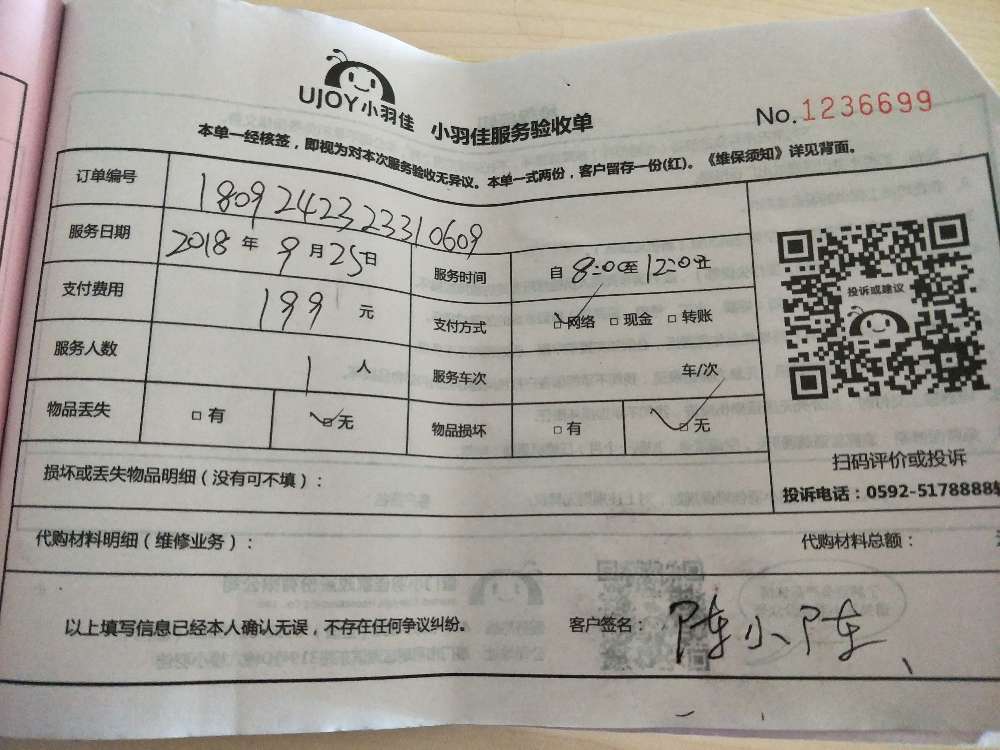 UJOY小羽佳 小羽佳服务验收单
No.1236699
本单一经核签，即视为对本次服务验收无异议。本单一式两份，客户留存一份(红)。《维保须知》详见背面。
订单编号 1809242323310609
服务日期 2018年9月25日 服务时间 自8:00至12:00止
支付费用 199元 支付方式 □网络 □现金 □转账
服务人数 1人 服务车次 车/次
物品丢失 □有 □无 物品损坏 □有 □无
投诉或建议
扫码评价或投诉
投诉电话：0592-5178888转
损坏或丢失物品明细（没有可不填）：
代购材料明细（维修业务）： 代购材料总额：
以上填写信息已经本人确认无误，不存在任何争议纠纷。 客户签名：陈小陈